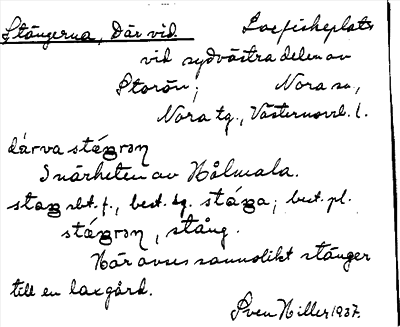 Stängerna, Där vid. Laxfiskeplats
vid sydvästra delen av
Storön; Nora sn,
Nora tg., Västernorrl. l.
dárva stáŋɡrəŋ
I närheten av Hålmala.
staŋ sbt. f., best. sg. stáŋa; best. pl.
stáŋɡrəŋ, stång.
Här avses sannolikt stänger
till en laxgård.
Sven Hiller 1937.